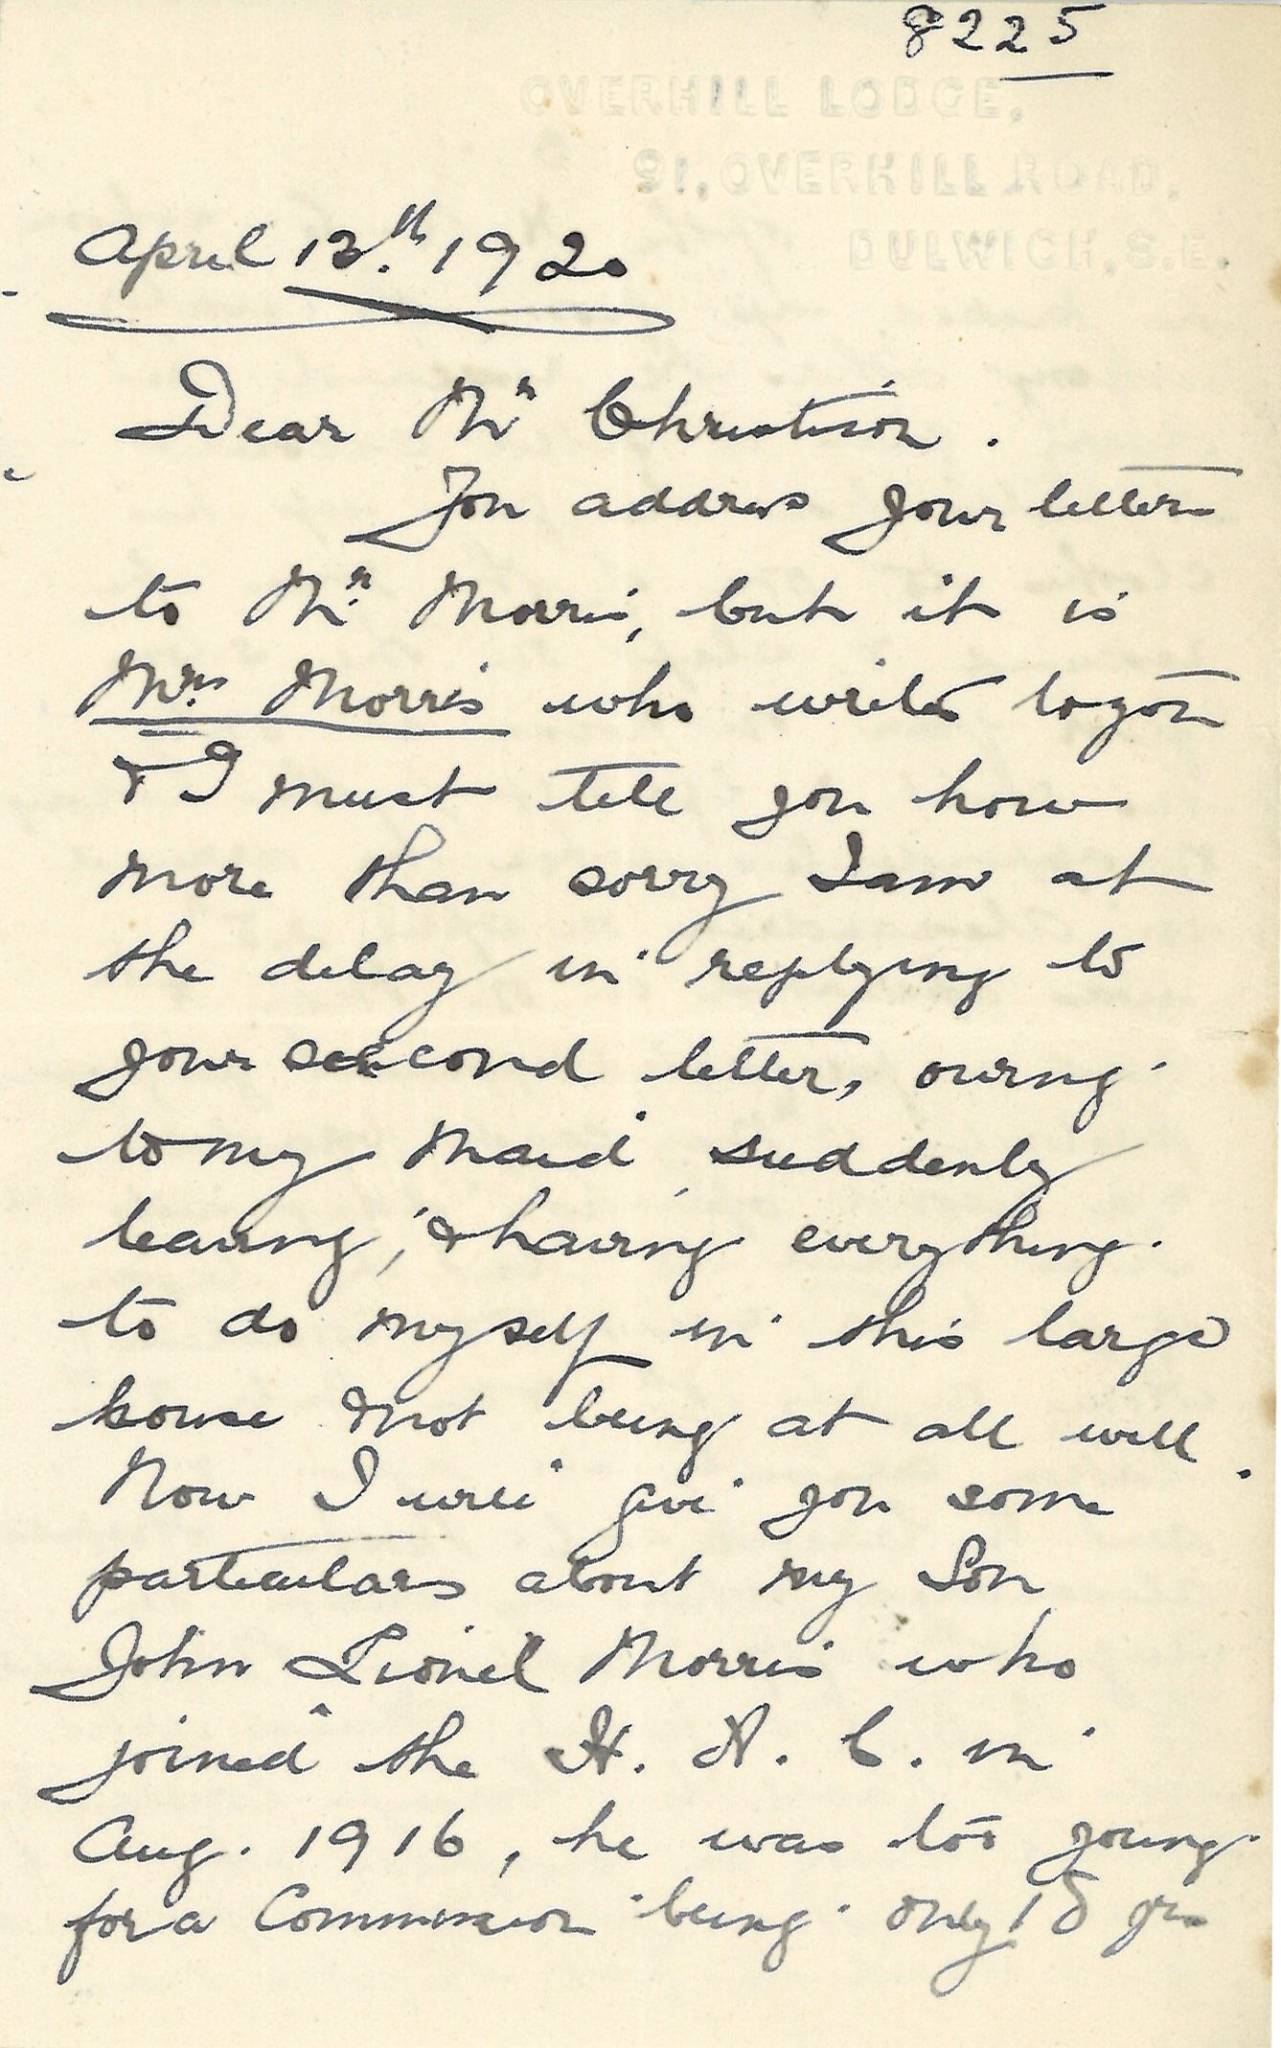 8225
OVERHILL LODGE,
91, OVERHILL ROAD,
DULWICH, S.E.
April 13th. 1920
Dear Mr Christison.
You address your letters
to Mr. Morris, but it is
Mrs. Morris who writes to you
& I must tell you how
more than sorry I am at
the delay in replying to
your second letter, owing
to my maid suddenly
leaving, & having everything
to do myself in this large
house & not being at all well.
Now I will give you some
particulars about my Son
John Lionel Morris who
joined the H. A. C. in
Aug. 1916, he was too young
for a Commission being only 18 yrs